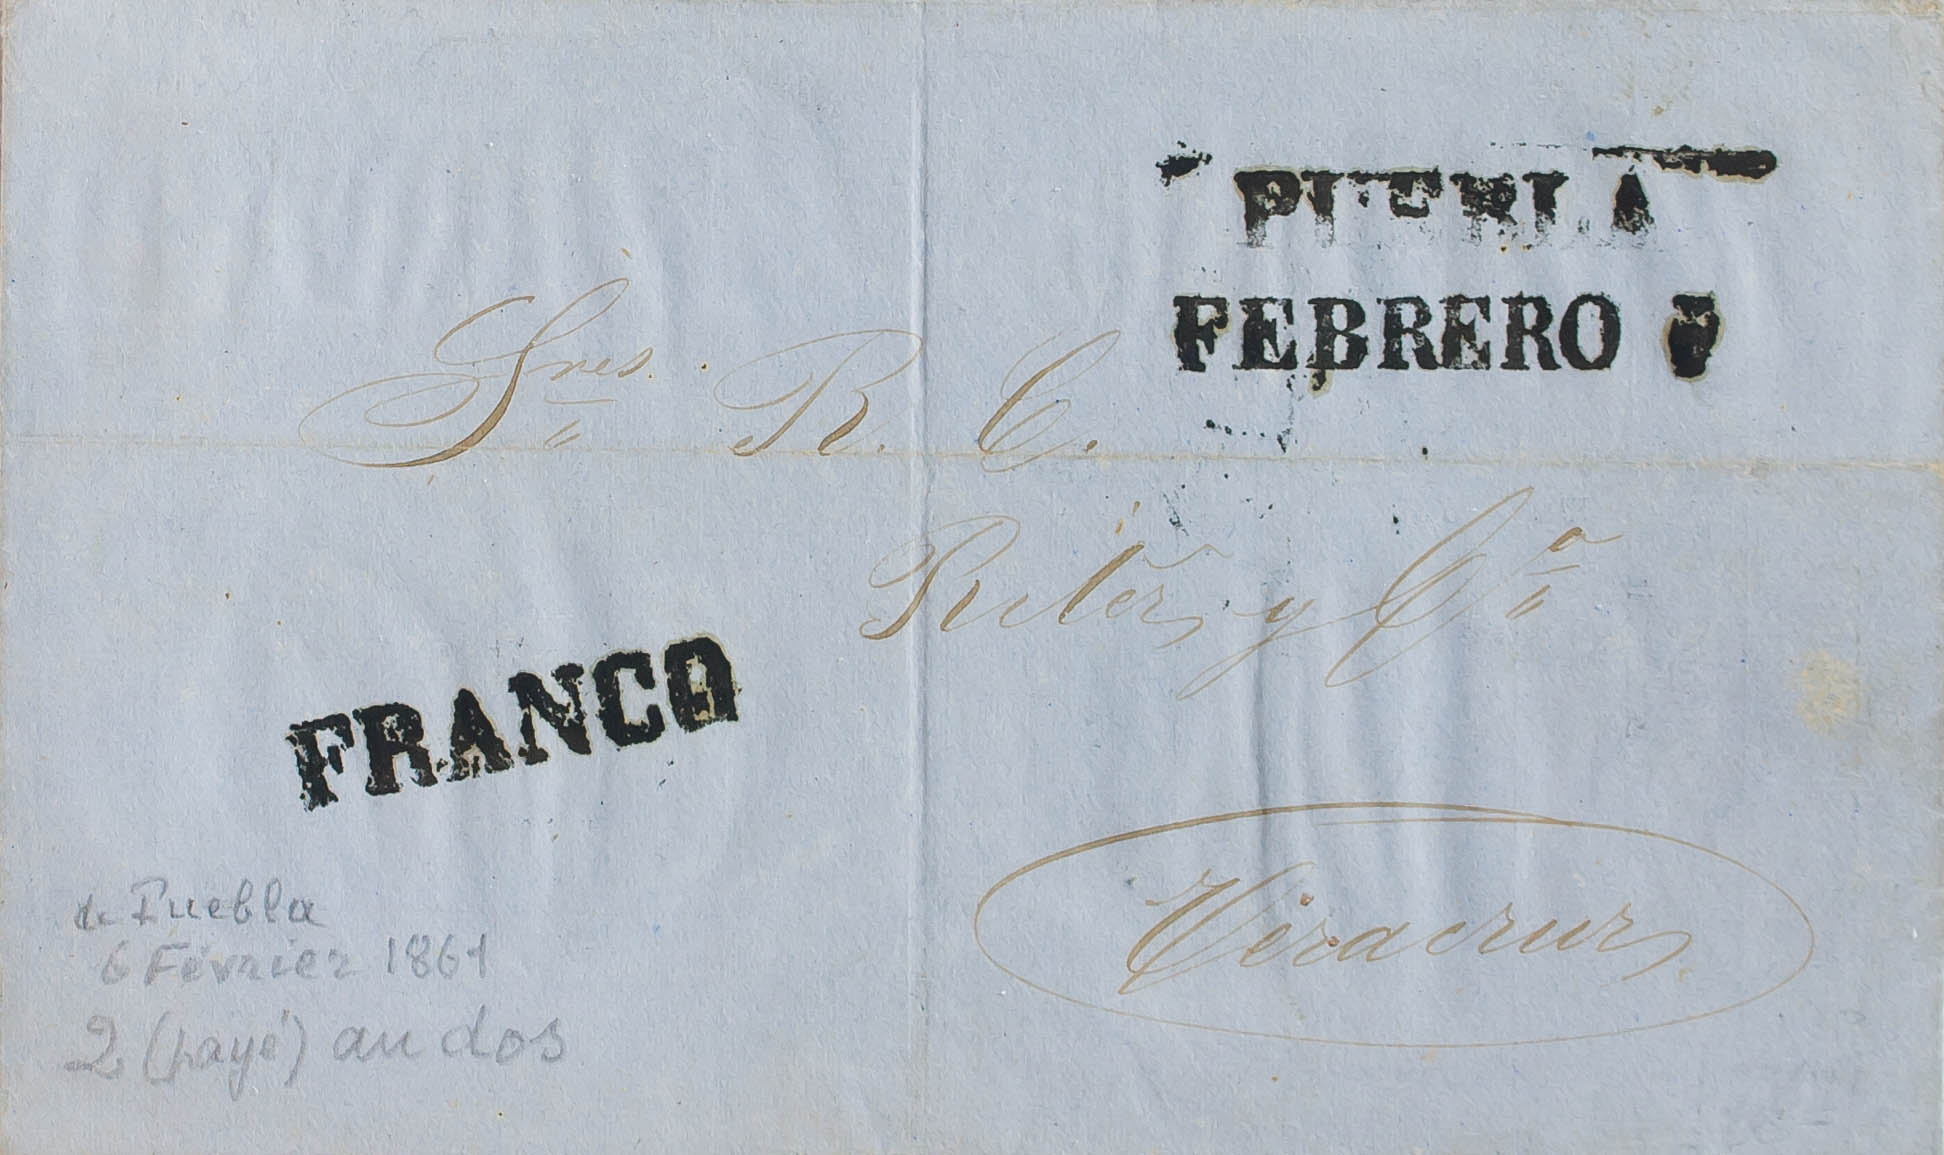 PUEBLA
FEBRERO
Sres. R. C.
Ritter y Cª
FRANCO
Veracruz
de Puebla
6 Février 1861
2 (payé) au dos